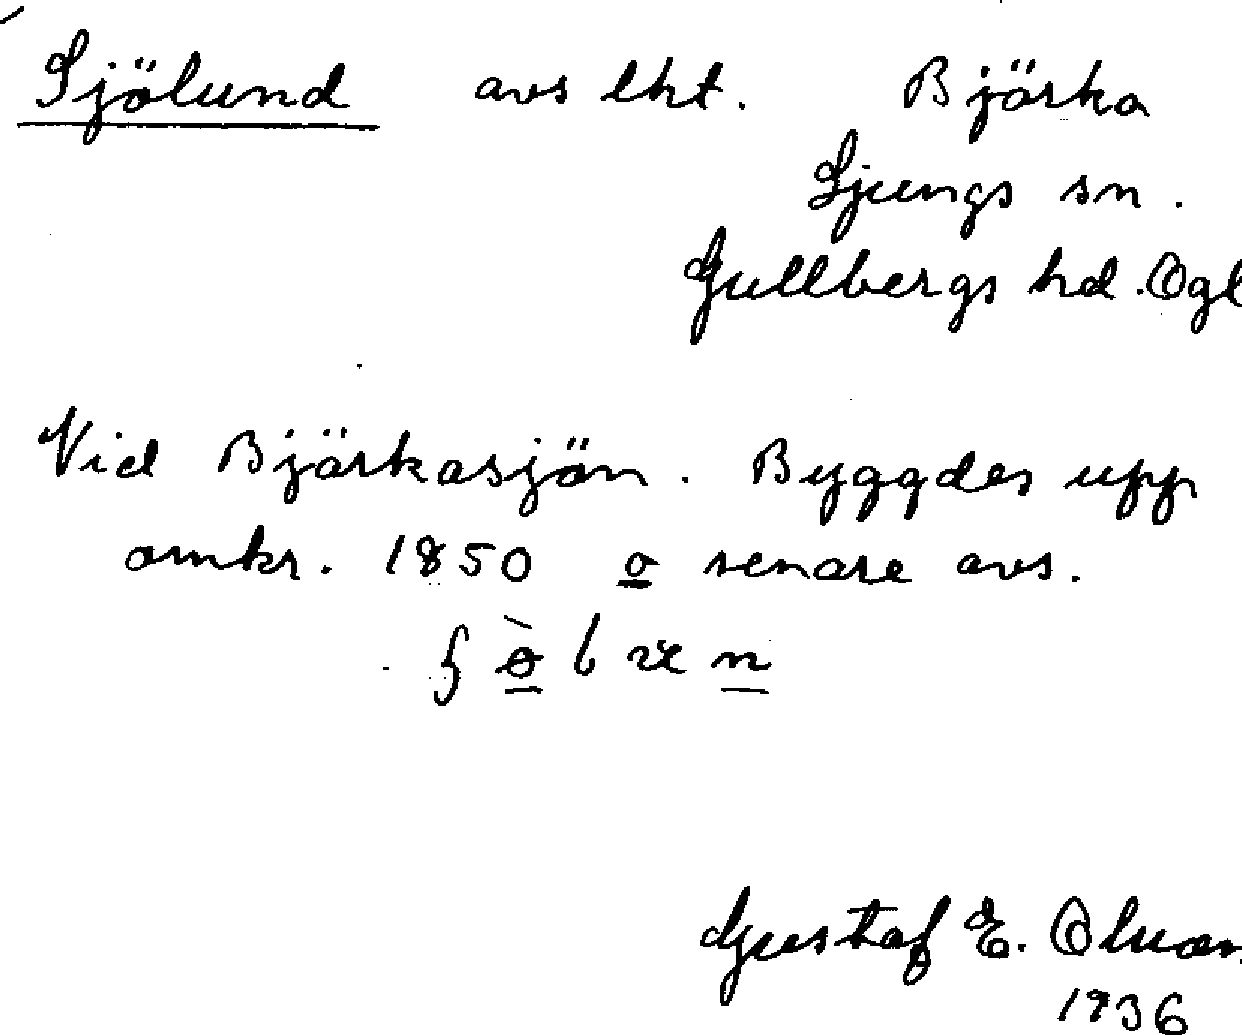 Sjölund avs lht. Bjärka
Ljungs sn.
Gullbergs hd. Ögl
Vid Bjärkasjön. Byggdes upp
omkr. 1850 o senare avs.
Gustaf E.
1936